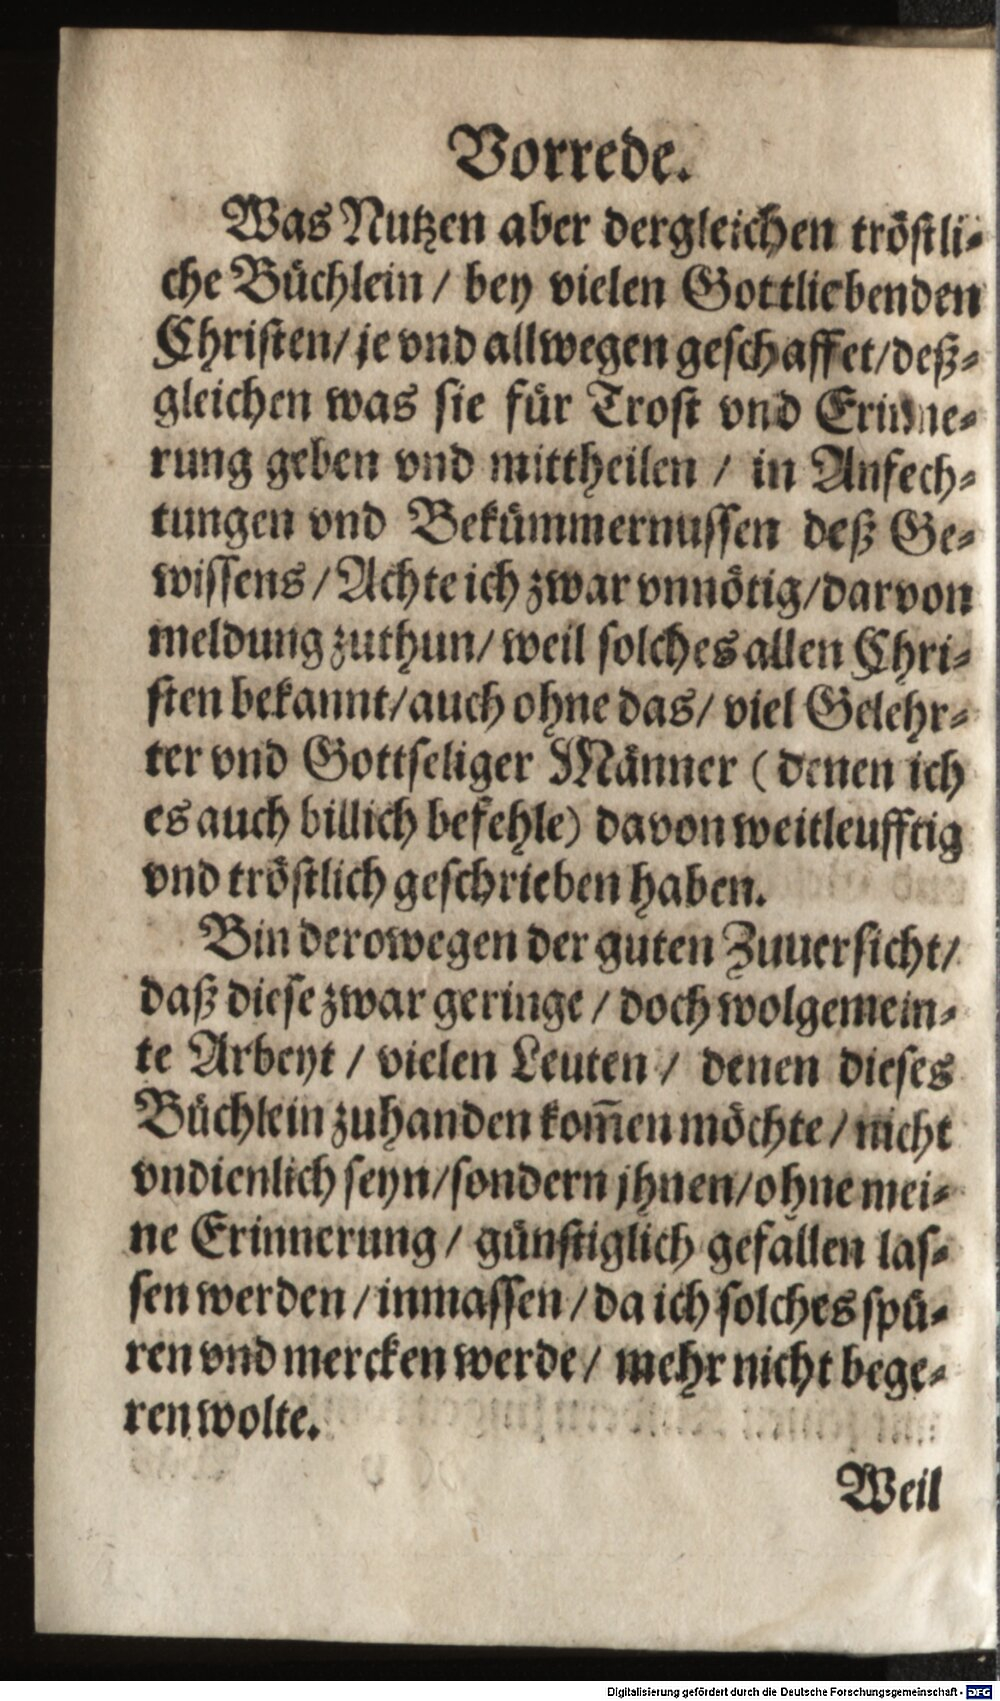 Vorrede.
Was Nutzen aber dergleichen tröstli-
che Büchlein / bey vielen Gottliebenden
Christen / je vnd allwegen geschaffet / deß-
gleichen was sie für Trost vnd Erinne-
rung geben vnd mittheilen / in Anfech-
tungen vnd Bekümmernussen deß Ge-
wissens / Achte ich zwar vnnötig / darvon
meldung zuthun / weil solches allen Chri-
sten bekannt / auch ohne das / viel Gelehr-
ter vnd Gottseliger Männer ( denen ich
es auch billich befehle ) davon weitleufftig
vnd tröstlich geschrieben haben.
Bin derowegen der guten Zuuersicht /
daß diese zwar geringe / doch wolgemein-
te Arbeyt / vielen Leuten / denen dieses
Büchlein zuhanden kom̃en möchte / nicht
vndienlich seyn / sondern jhnen / ohne mei-
ne Erinnerung / günstiglich gefallen las-
sen werden / inmassen / da ich solches spü-
ren vnd mercken werde / mehr nicht bege-
ren wolte.
Weil
Digitalisierung gefördert durch die Deutsche Forschungsgemeinschaft - DFG